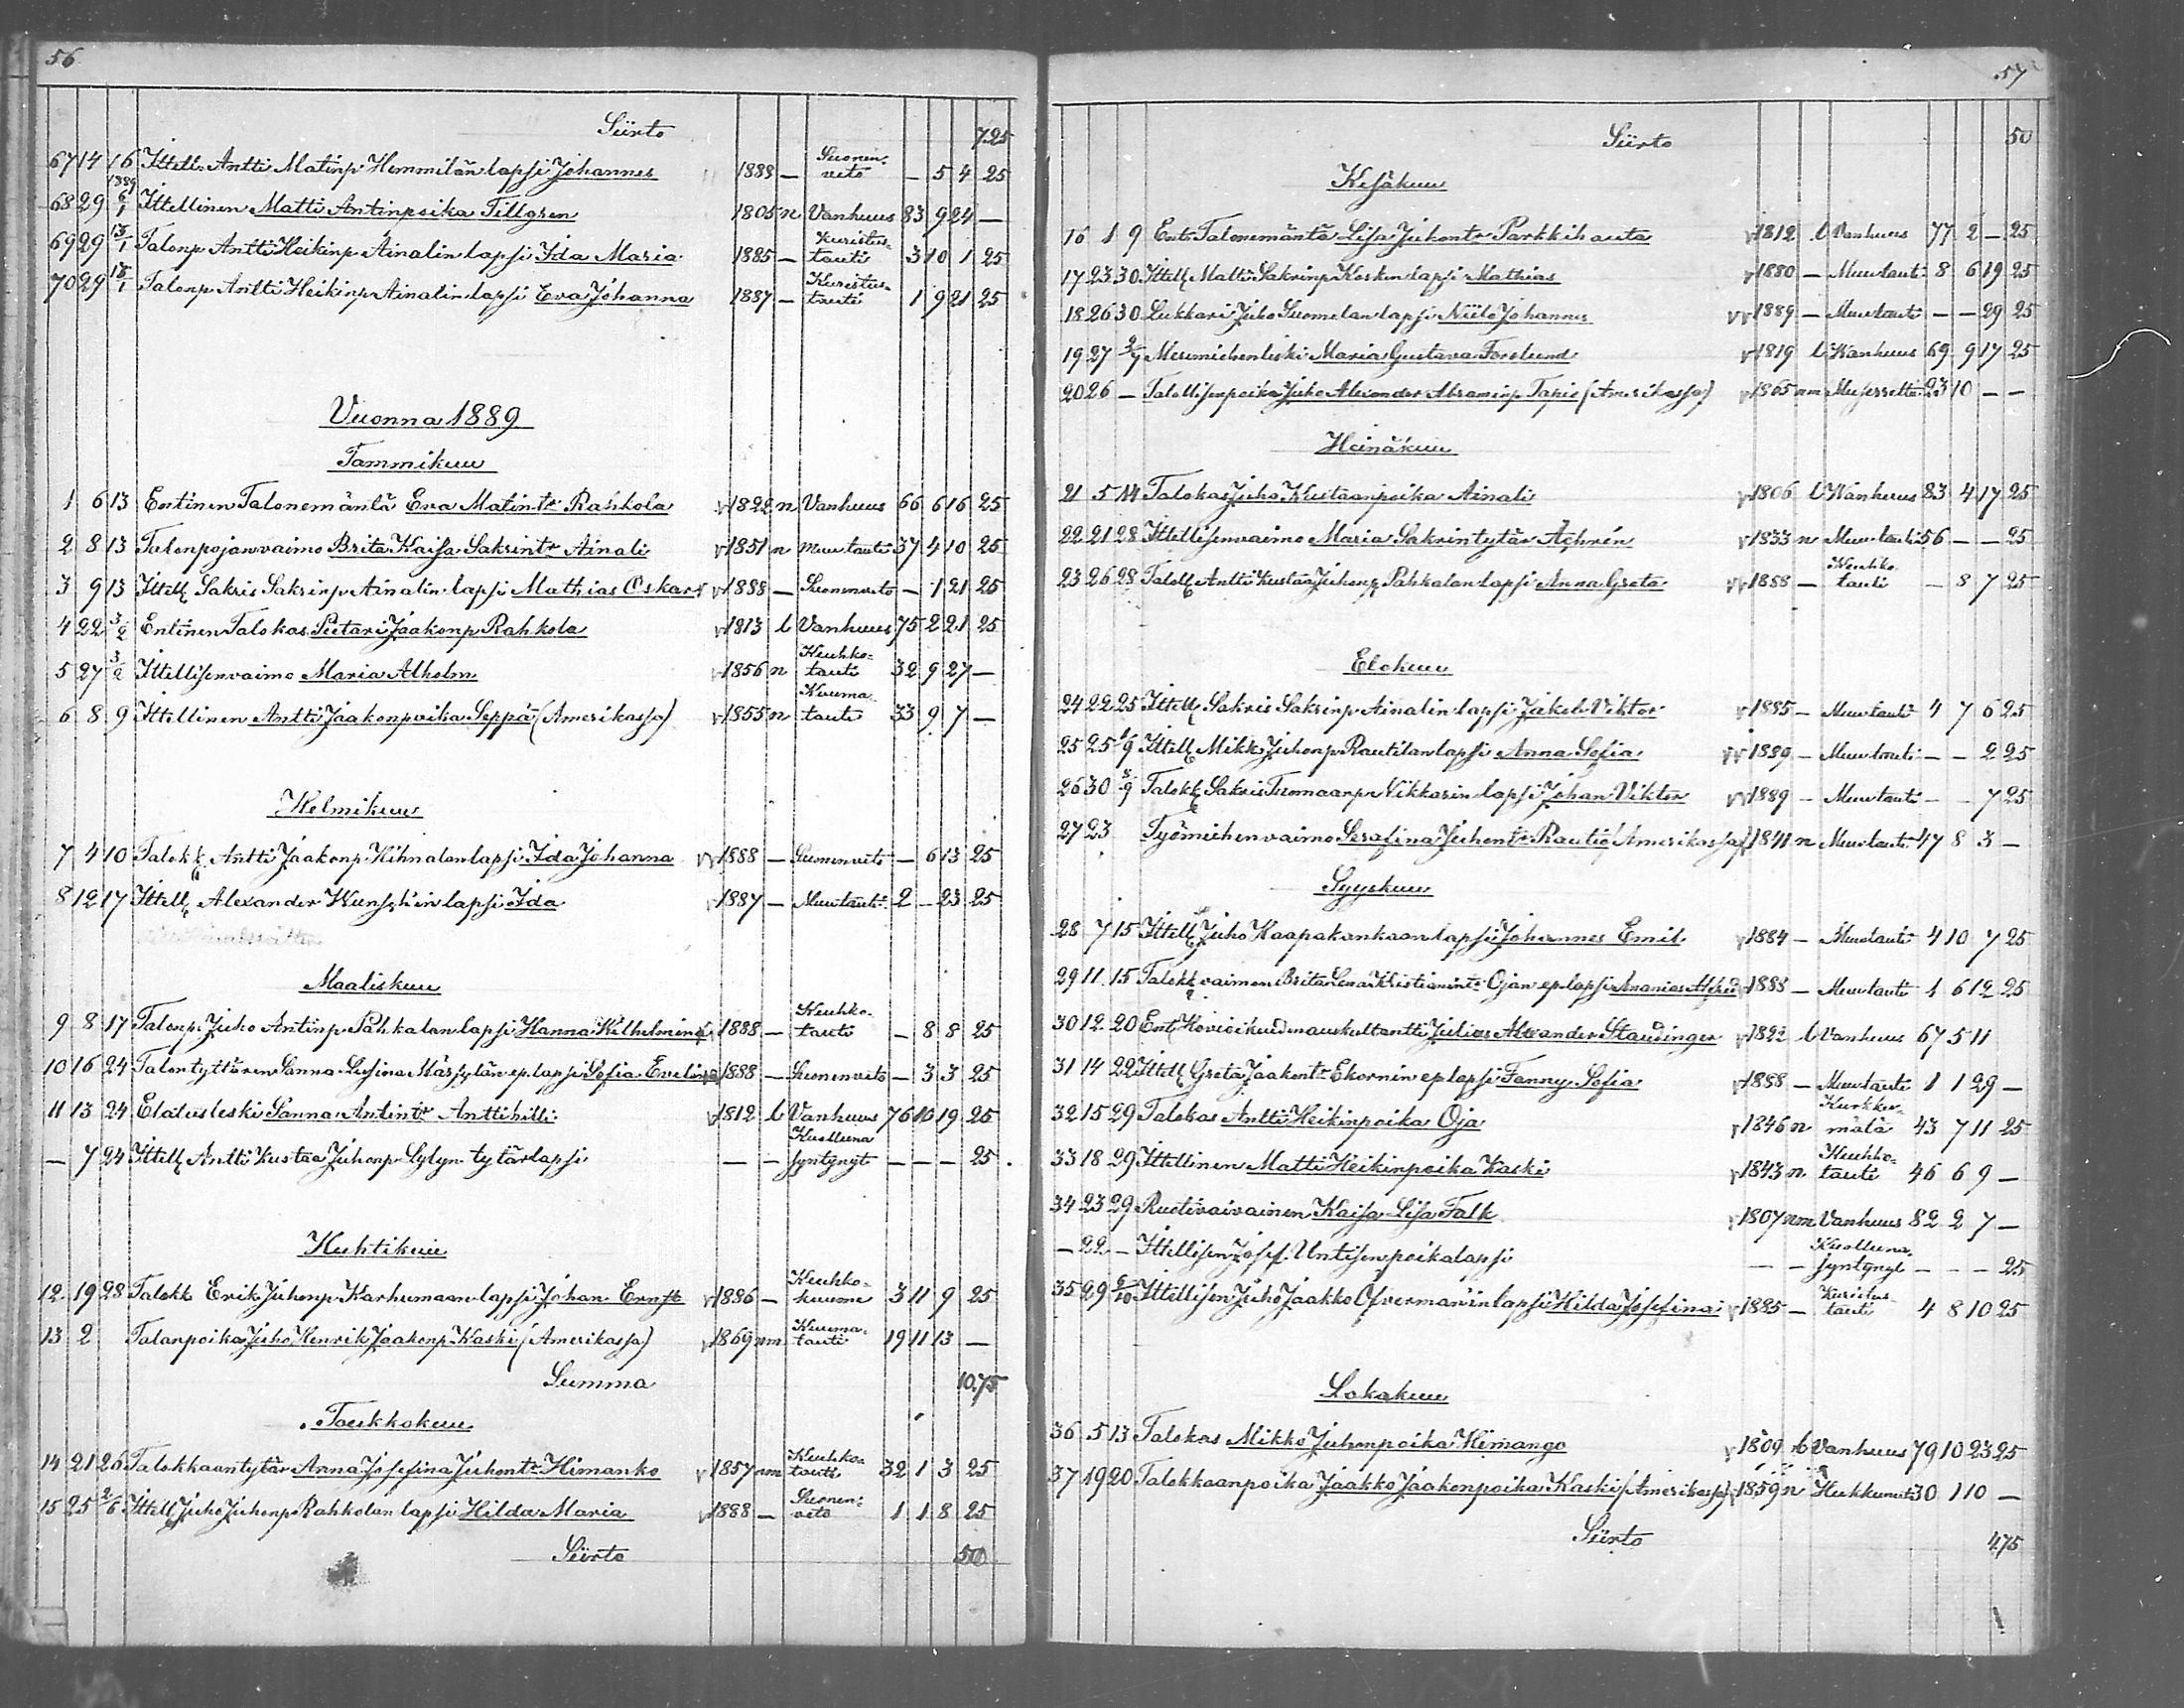 56
Siirto 7.25
67 14 16 Ittell. Antti Matinp. Hemmilän lapsi Johannes 1888 — Suonen-veto — 5 4 25
68 29 1889 6/1 Ittellinen Matti Antinpoika Tillgren 1805 n Vanhuus 83 9 24 —
69 29 13/1 Talonp. Antti Heikinp Ainalin lapsi Ida Maria 1885 — Kuristus-tauti 3 10 1 25
70 29 13/1 Talonp. Antti Heikinp Ainalin lapsi Eva Johanna 1887 — Kuristus-tauti 1 9 21 25
Vuonna 1889
Tammikuu
1 6 13 Entinen Talonemäntä Eva Matintr Rahkola 1822 n Vanhuus 66 6 16 25
2 8 13 Talonpojanvaimo Brita Kaisa Sakrintr Ainali 1851 n Muutauti 37 4 10 25
3 9 13 Ittell Sakris Sakrinp Ainalin lapsi Mathias Oskar 1888 — Suonenveto — 1 21 25
4 22 3/2 Entinen Talokas Pietari Jaakonp Rahkola 1813 l Vanhuus 75 2 21 25
5 27 3/2 Ittellisenvaimo Maria Alholm 1856 n Keuhko-tauti 32 9 27 —
6 8 9 Ittellinen Antti Jaakonpoika Seppä (Amerikassa) 1855 n Kuuma-tauti 33 9 7 —
Helmikuu
7 4 10 Talokk. Antti Jaakonp. Hihnalan lapsi Ida Johanna 1888 — Suonenveto — 6 13 25
8 12 17 Ittell. Alexander Kunskin lapsi Ida 1887 — Muutauti 2 — 23 25
Maaliskuu
9 8 17 Talonp. Juho Antinp Pahkalan lapsi Hanna Wilhelmina 1888 — Keuhko-tauti — 8 8 25
10 16 24 Talontyttären Sanna Lusina Märsylän ep. lapsi Sofia Evelina 1888 — Suonenveto — 3 3 25
11 13 24 Elatusleski Sanna Antintr Anttihilli 1812 l Vanhuus 76 10 19 25
— 7 24 Ittell Antti Kustaa Juhonp Sylyn tytärlapsi — — Kuolleena syntynyt — — — 25
Huhtikuu
12 19 28 Talokk Erik Juhonp Karhumaan lapsi Johan Ernst 1886 — Keuhko-kuume 3 11 9 25
13 2 Talanpoika Juho Henrik Jaakonp Kaski (Amerikassa) 1869 nm Kuuma-tauti 19 11 13 —
Summa 10.75
Toukkokuu
14 21 26 Talokkaantytär Anna Josefina Juhontr Himanko 1857 nm Keuhko-tauti 32 1 3 25
15 25 2/6 Ittell Juho Juhonp Rahkolan lapsi Hilda Maria 1888 — Suonen-veto 1 1 8 25
Siirto 50
57
Siirto 50
Kesäkuu
16 1 9 Ent. Talonemäntä Lisa Juhontr Parkkihauta 1812 l Vanhuus 77 2 — 25
17 23 30 Ittell Matti Sakrinp Kosken lapsi Mathias 1880 — Muutauti 8 6 19 25
18 26 30 Lukkari Juho Suomelan lapsi Niilo Johannes 1889 — Muutauti — — 29 25
19 27 2/7 Merimiehenleski Maria Gustava Forslund 1819 l Vanhuus 69 9 17 25
20 26 — Talollisenpoika Juho Alexander Abraminp Tapio (Amerikassa) 1865 nm 23 10 — —
Heinäkuu
21 5 14 Talokas Juho Kustaanpoika Ainali 1806 l Vanhuus 83 4 17 25
22 21 28 Ittellisenvaimo Maria Sakrintytär Achrén 1833 n Muutauti 56 — — 25
23 26 28 Talok Antti Kustaa Juhonp Pahkalan lapsi Anna Greta 1888 — Keuhko-tauti — 8 7 25
Elokuu
24 22 25 Ittell Sakris Sakrinp Ainalin lapsi Jakob Viktor 1885 — Muutauti 4 7 6 25
25 25 1/9 Ittell Mikk Juhonp Rautilan lapsi Anna Sofia 1889 — Muutauti — — 2 25
26 30 8/9 Talokk Sakris Tuomaanp Vikkarin lapsi Johan Viktor 1889 — Muutauti — — 7 25
27 23 Työmiehenvaimo Serafina Juhontr Rautio (Amerikassa) 1841 n Muutauti 47 8 3 —
Syyskuu
28 7 15 Ittell Juho Haapakankaan lapsi Johannes Emil 1884 — Muutauti 4 10 7 25
29 11 15 Talokk vaimon Brita Lena Kristianintr Ojan ep lapsi Ananias Alfred 1888 — Muutauti 1 6 12 25
30 12 20 Ent. Hovioikeudenauskultantti Julius Alexander Staudinger 1822 l Vanhuus 67 5 11
31 14 22 Ittell Greta Jaakontr Ekornin ep lapsi Fanny Sofia 1888 — Muutauti 1 1 29 —
32 15 29 Talokas Antti Heikinpoika Oja 1846 n Kurkku-mätä 43 7 11 25
33 18 29 Ittellinen Matti Heikinpoika Kaski 1843 n Keuhko-tauti 46 6 9 —
34 23 29 Ruotivaivainen Kaisa Lisa Falk 1807 nm Vanhuus 82 2 7 —
— 22 — Ittellisen Josef Untisen poikalapsi — — Kuolleena syntynyt — — — 25
35 29 6/10 Ittellisen Juho Jaakko Öfvermanin lapsi Hilda Josefina 1885 — Kuristus-tauti 4 8 10 25
Lokakuu
36 5 13 Talokas Mikko Juhonpoika Himango 1809 l Vanhuus 79 10 23 25
37 19 20 Talokkaanpoika Jaakko Jaakonpoika Kaski (Amerikassa) 1859 n Hukkunut 30 1 10 —
Siirto 4.75